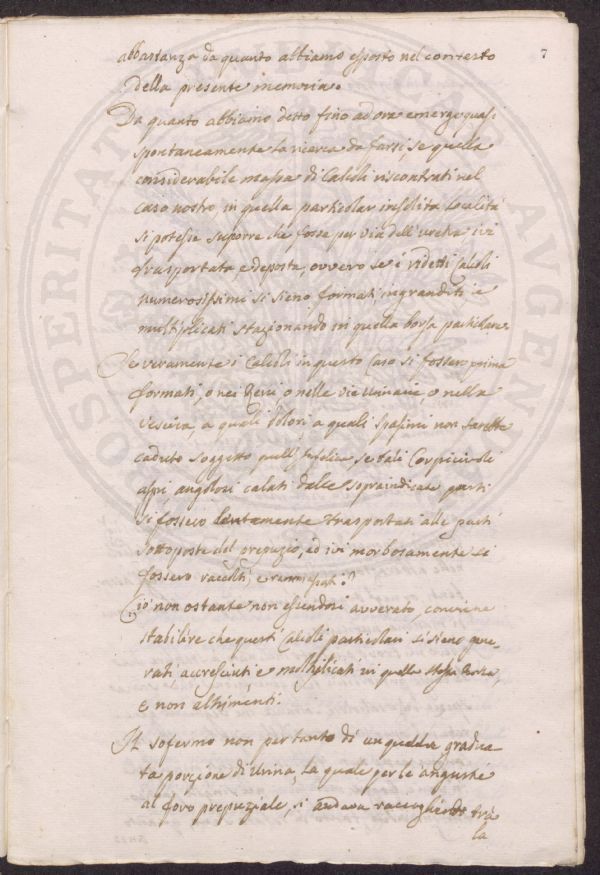 7
abbastanza da quanto abbiamo esposto nel contesto
della presente memoria.
Da quanto abbiamo detto fino ad ora emerge quasi
spontaneamente la ricerca da farsi, se quella
considerabile massa di Calcoli riscontrati nel
caso nostro, in quella particolar insolita località
si potesse supporre che fosse per via dell'uretra ivi
trasportata e deposta, ovvero se i ridetti Calcoli
numerosissimi si sieno formati ingranditi e
multiplicati stazionando in quella borsa particolare.
Se veramente i Calcoli in questo Caso si fossero prima
formati, o nei Reni o nelle vie Urinarie o nella
vescica, a quali dolori a quali spasimi non sarebbe
caduto soggetto quell'Infelice se tali Corpicivoli
aspri angolosi calati dalle sopraindicate parti
si fossero lentamente trasportati alle parti
sottoposte del prepuzio, ed ivi morbosamente si
fossero raccolti, e rammassati?
Ciò non ostante non essendosi avverato, conviene
stabilire che questi Calcoli particolari si sieno gene-
rati accresciuti e moltiplicati in quella stessa borsa,
e non altrimenti.
Il soffermo non per tanto di una gradua-
ta porzione di Urina, la quale per le angustie
al foro prepuziale, si andava raccogliendo tra
la
PROSPERITATI PUBLICAE AUGENDAE